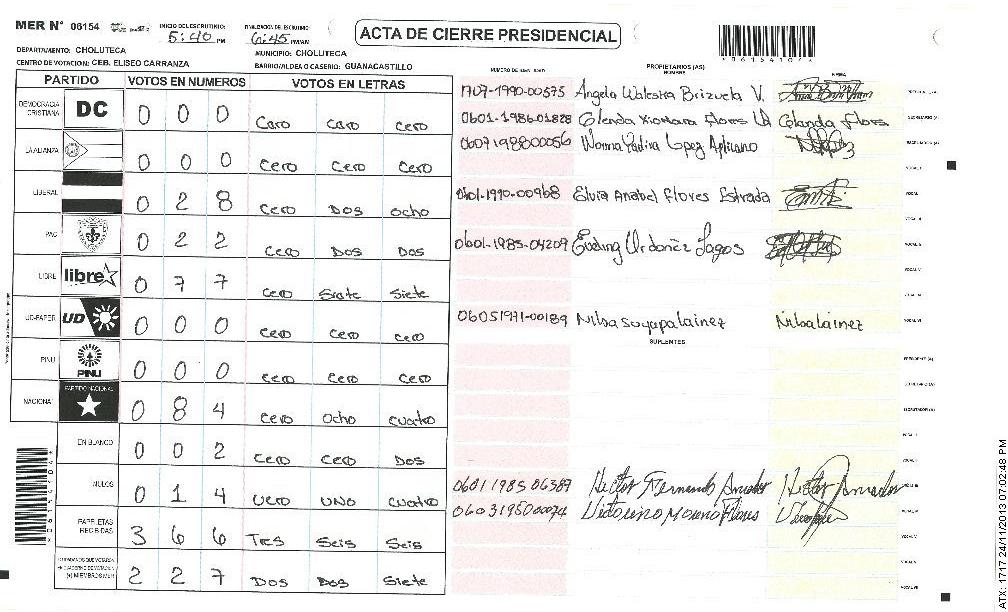 MER N° 06154 INICIO DEL ESCRUTINIO: 5:40 PM FINALIZACION DEL ESCRUTINIO: 6:45 PM/AM
ACTA DE CIERRE PRESIDENCIAL
DEPARTAMENTO: CHOLUTECA MUNICIPIO: CHOLUTECA
CENTRO DE VOTACION: CEB. ELISEO CARRANZA BARRIO/ALDEA O CASERIO: GUANACASTILLO
PARTIDO VOTOS EN NUMEROS VOTOS EN LETRAS
DEMOCRACIA CRISTIANA DC 0 0 0 Cero Cero Cero
LA ALIANZA 0 0 0 Cero Cero Cero
LIBERAL 0 2 8 Cero Dos Ocho
PAC 0 2 2 Cero Dos Dos
LIBRE libre 0 7 7 Cero Siete Siete
UD-FAPER UD 0 0 0 Cero Cero Cero
PINU PINU 0 0 0 Cero Cero Cero
NACIONAL PARTIDO NACIONAL 0 8 4 Cero Ocho Cuatro
EN BLANCO 0 0 2 Cero Cero Dos
NULOS 0 1 4 Cero Uno Cuatro
PAPELETAS RECIBIDAS 3 6 6 Tres Seis Seis
CIUDADANOS QUE VOTARON EN CUADERNO DE VOTACION (+) MIEMBROS MER 2 2 7 Dos Dos Siete
PROPIETARIOS (AS)
NOMBRE FIRMA
1707-1990-00575 Angela Waleska Brizuela V.
0601-1986-01828 Glenda Xiomara Flores Glenda Flores
0607198800056 Norma Yadira Lopez Aplicano
0601-1990-00968 Elvia Anabel Flores Estrada
0601-1985-04209 Ordoñez Lagos
06051971-00189 Nilsa Suyapa Lainez Nilsa Lainez
SUPLENTES
0601 1985 06389 Hector Fernando Amador Hector Amador
0603195000074 Victorino Moreno Flores
ATX: 1717 24/11/2013 07:02:48 PM